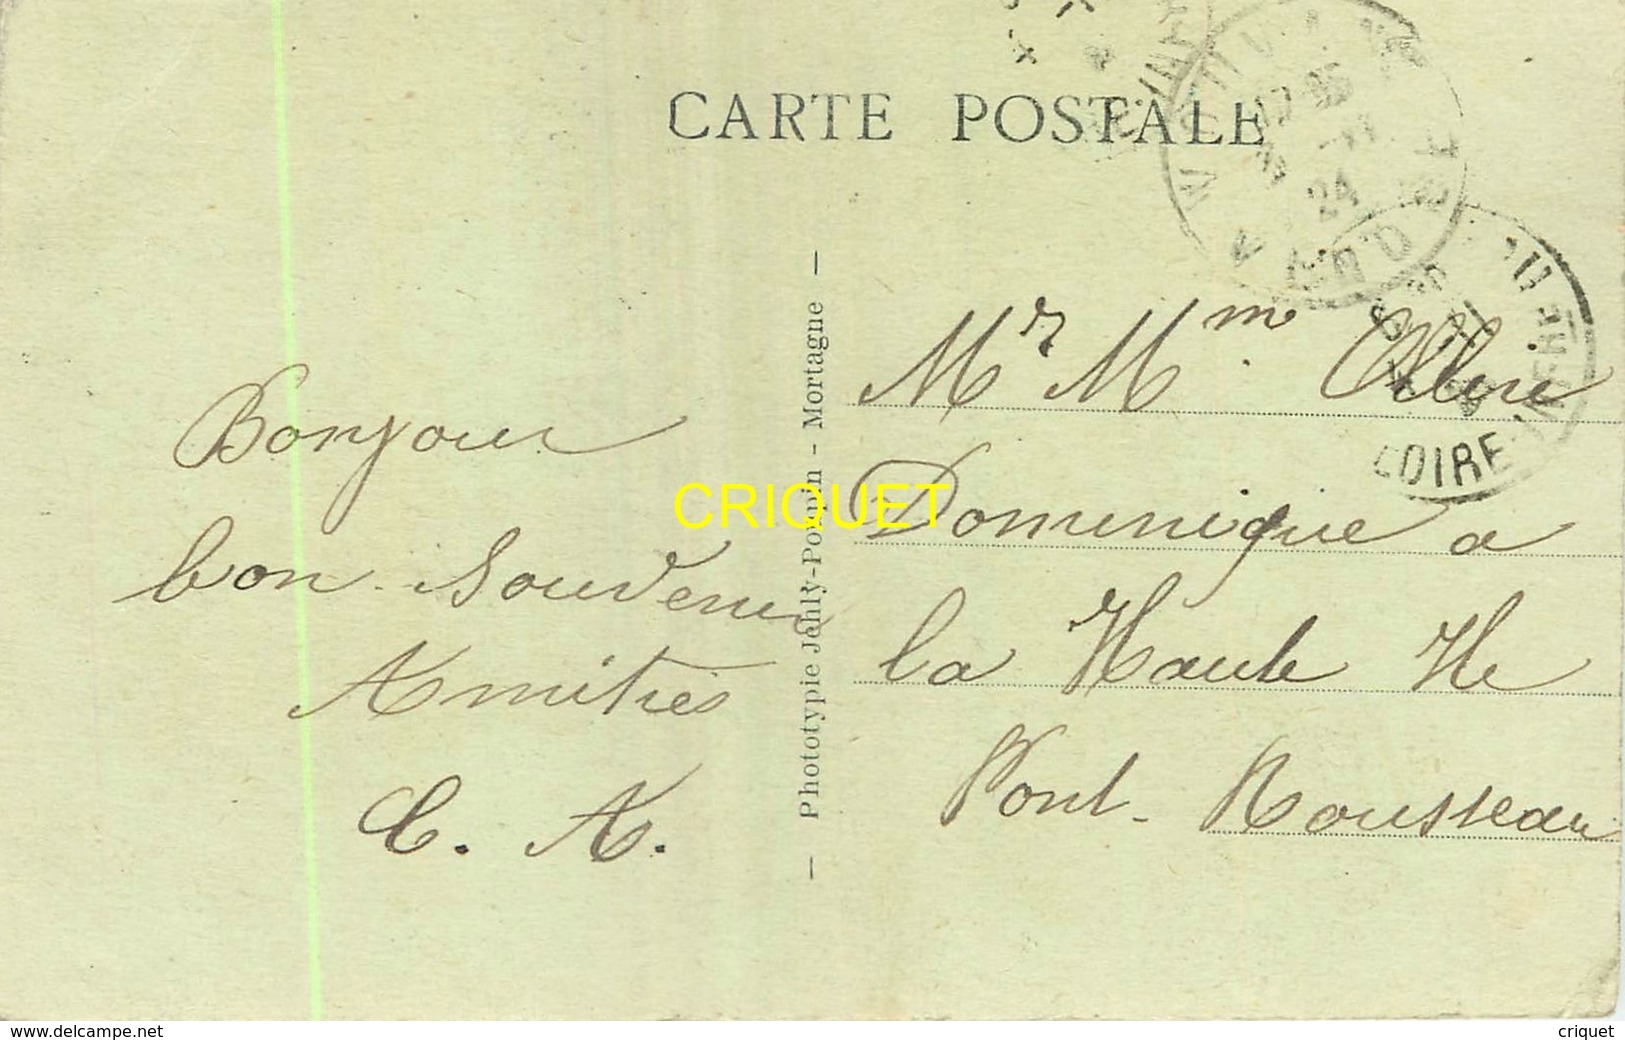 CARTE POSTALE
24
LOIRE
Bonjour
bon Souvenir
Amitiés
C. A.
- Phototypie Jehly-Poupin - Mortagne -
CRIQUET
Mr Mm
Dominique a
la Haute Ile
Pont-Rousseau
www.delcampe.net
criquet